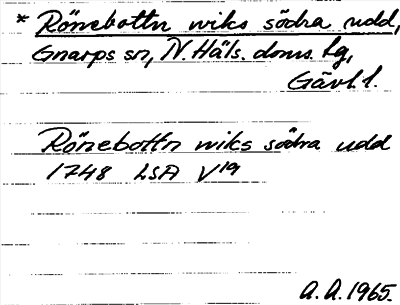 * Rönebottn wiks södra udd,
Gnarps sn, N. Häls. doms. hg,
Gävl. l.
Rönebottn wiks södra udd
1748 LSA V19
A. A. 1965.